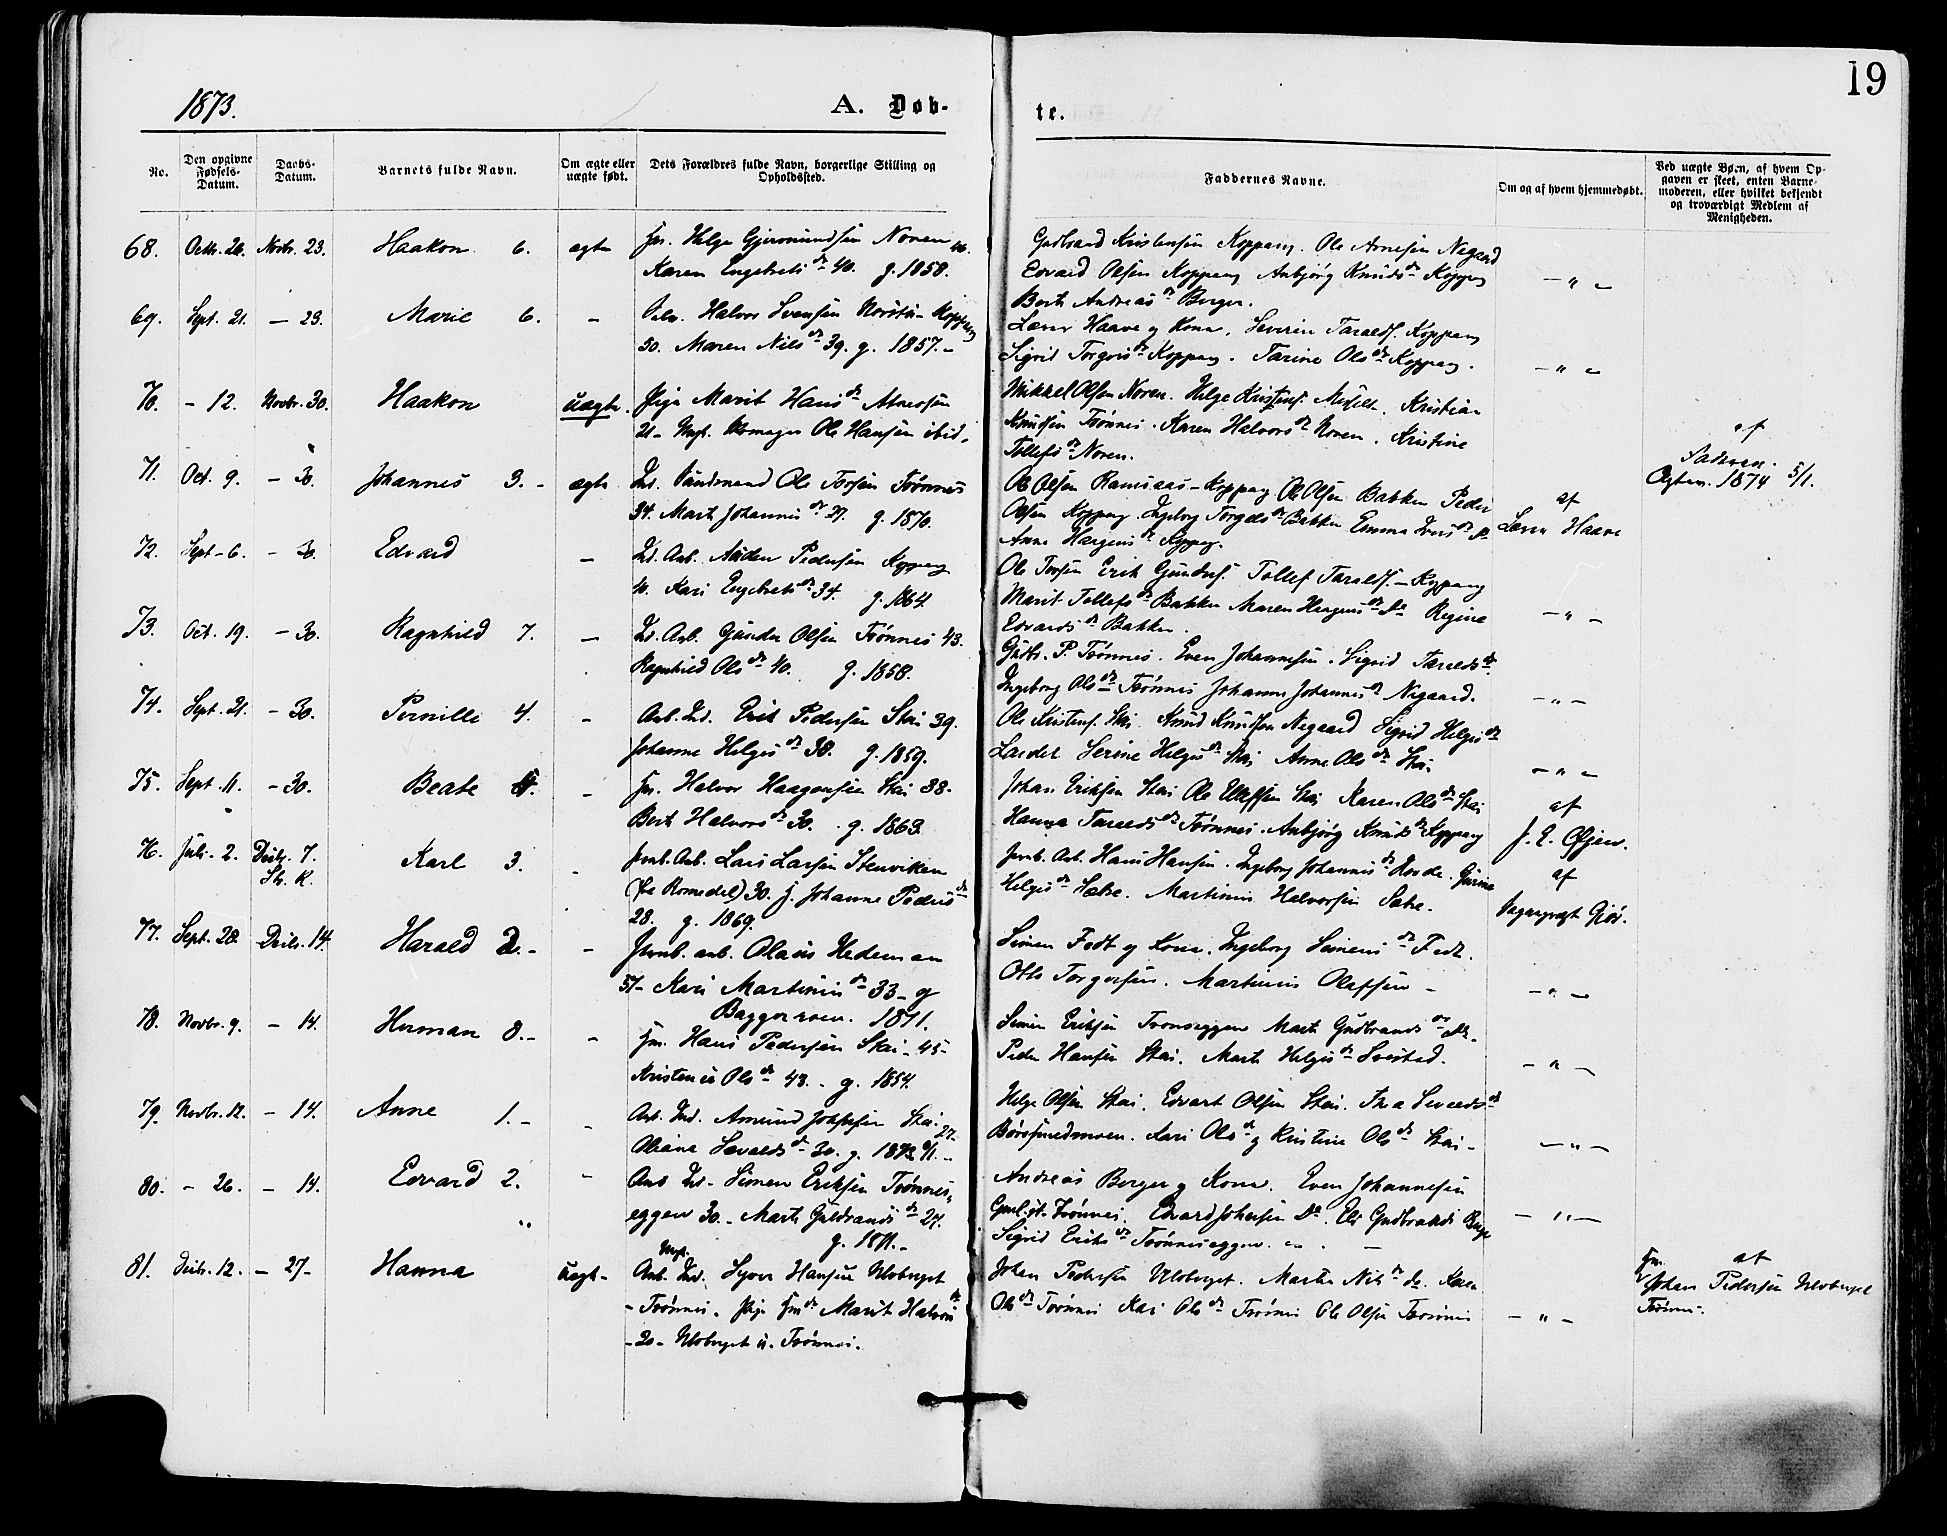 19
1873.
A. Døb-
te.
No.
Den opgivne Fødsels-Datum.
Daabs-Datum.
Barnets fulde Navn.
Om ægte eller uægte født.
Dets Forældres fulde Navn, borgerlige Stilling og Opholdssted.
Faddernes Navne.
Om og af hvem hjemmedøbt.
Ved uægte Børn, af hvem Op-
gaven er skeet, enten Barne-
moderen, eller hvilket bekjendt
og troværdigt Medlem af
Menigheden.
68. Octb. 26. Novbr. 23. Haakon 6. ægte
Helge Noren
Karen Engebrets dr 40. g. 1858.
Gudbrand Kristensen Koppang. Ole Arnesen Nygaard
Edvard Olsen Koppang Anbjørg Knuds dr Koppang
Berte Andreas dr Berger.
— " —
69. Sept. 21. — 23. Marie 6. —
Halvor Svensen Koppang
50. Maren Nils dr 39. g. 1857. –
Lærer Haave og Kone, Severin Taralds. Koppang
Sigrid Torgers dr Koppang. Tarine Ols dr Koppang.
— " —
70. – 12. Novbr. 30. Haakon uægte.
Pige Marit Hans dr
21 – Ungk. Ole Hansen ibid.
Mikkel Olsen Noren. Helge Kristens. Kristian
Knudsen Trønnes. Karen Halvors dr Noren. Kristine
Tollefs dr Noren.
af
Faderen.
Ægtev. 1874 5/1.
71. Oct. 9. – 30. Johannes 3. – ægte
Ind. Ole Torsen Trønnes
34. Marte Johannes dr 27. g. 1870.
Ole Olsen Ramsaas – Koppang Ole Olsen Bakken Peder
Olsen Koppang. Ingeborg Torgals dr Bakken Emma Ivers dr
Anne Koppang.
af
Lærer Haave
72. Sept. 6. – 30. Edvard —
Ind. Arb. Auden Pedersen Koppang
40. Kari Engebrets dr 34. g. 1864.
Ole Torsen Erik Gunders. Tollef Taralds. – Koppang
Marit Tollefs dr Bakken Maren Regine
Edvards dr Bakken.
— " —
73. Oct. 19. – 30. Ragnhild 7. —
Ind. Arb. Gunder Olsen Trønnes 43.
Ragnhild Ols dr 40. g. 1858.
Gudbr. P. Trønnes. Even Johannesen. Sigrid Taralds dr
Ingeborg Ols dr Trønnes Johanne Johannes dr Nygaard.
— " —
74. Sept. 21. – 30. Pernille 4. –
Arb. Ind. Erik Pedersen Stai 39.
Johanne Helges dr 38. g. 1859.
Ole Kristens. Stai. Knudsen Nygaard Sigrid Helges dr
Serine Helges dr Stai Anne Ols dr Stai
— " —
75. Sept. 11. – 30. Beate –
Halvor Haagensen Stai 38.
Berte Halvors dr 30. g. 1863.
Johan Eriksen Stai Ole Stai Karen Ols dr Stai
Hanna Taralds dr Trønnes. Anbjørg Knuds dr Koppang
af
76. Juli 2. Decbr. 7. St. K. Karl 3. –
Jernb. Arb. Lars Larsen Stenviken
(fra Romedal) 30. Johanne Peders dr
28. g. 1869.
Jernb. Arb. Hans Hansen. Ingeborg Johannes dr
Helges dr Sætre. Martinus Halvorsen Sætre.
af
77. Sept. 28. Decbr. 14. Harald 2. – –
Jernb. arb. Olaus Hedeman
Kari Martinius dr 33 – g
1871.
Simen Fedt og Kone. Ingeborg Simens dr Fedt.
Otto Torgersen. Martinus Olafsen –
— " —
78. Novbr. 9. – 14. Herman 8. – –
Hans Pedersen Stai – 45 –
Ols dr 43. – g. 1854.
Simen Eriksen Marte Gudbrands dr
Peder Hansen Stai. Marte Helges dr
— " —
79. Novbr. 12. – 14. Anne 1. – –
Arb. Ind. Amund Josefsen Stai 27.
Oliane Sevalds dr 30. g.
Helge Olsen Stai. Edvart Olsen Stai.
Kari Ols dr og Kristine Ols dr Stai –
— " —
80. – 26. – 14. Edvard 2. –
Arb. Ind. Simen Eriksen Trønnes-
eggen 30. – Marte Guldrands dr 27.
g. 1871. –
Andreas Berger og Kone. Even Johannesen
Trønnes.
Sigrid Eriks dr Trønneseggen.
— " —
81. Decbr. 12. – 27 – Hanna uægte –
Ungk.
Arb. Ind. Hansen Ulvberget
– Trønnes. Pige Marit Halvors dr
– 20 – Ulvberget u. Trønnes.
Johan Pedersen Ulvberget. Marthe Nils dr do. Karen
Ols dr Trønnes Kari Ols dr Trønnes Ole Olsen Trønnes
— " —
af
Johan Pedersen Ulvberget
Trønnes.